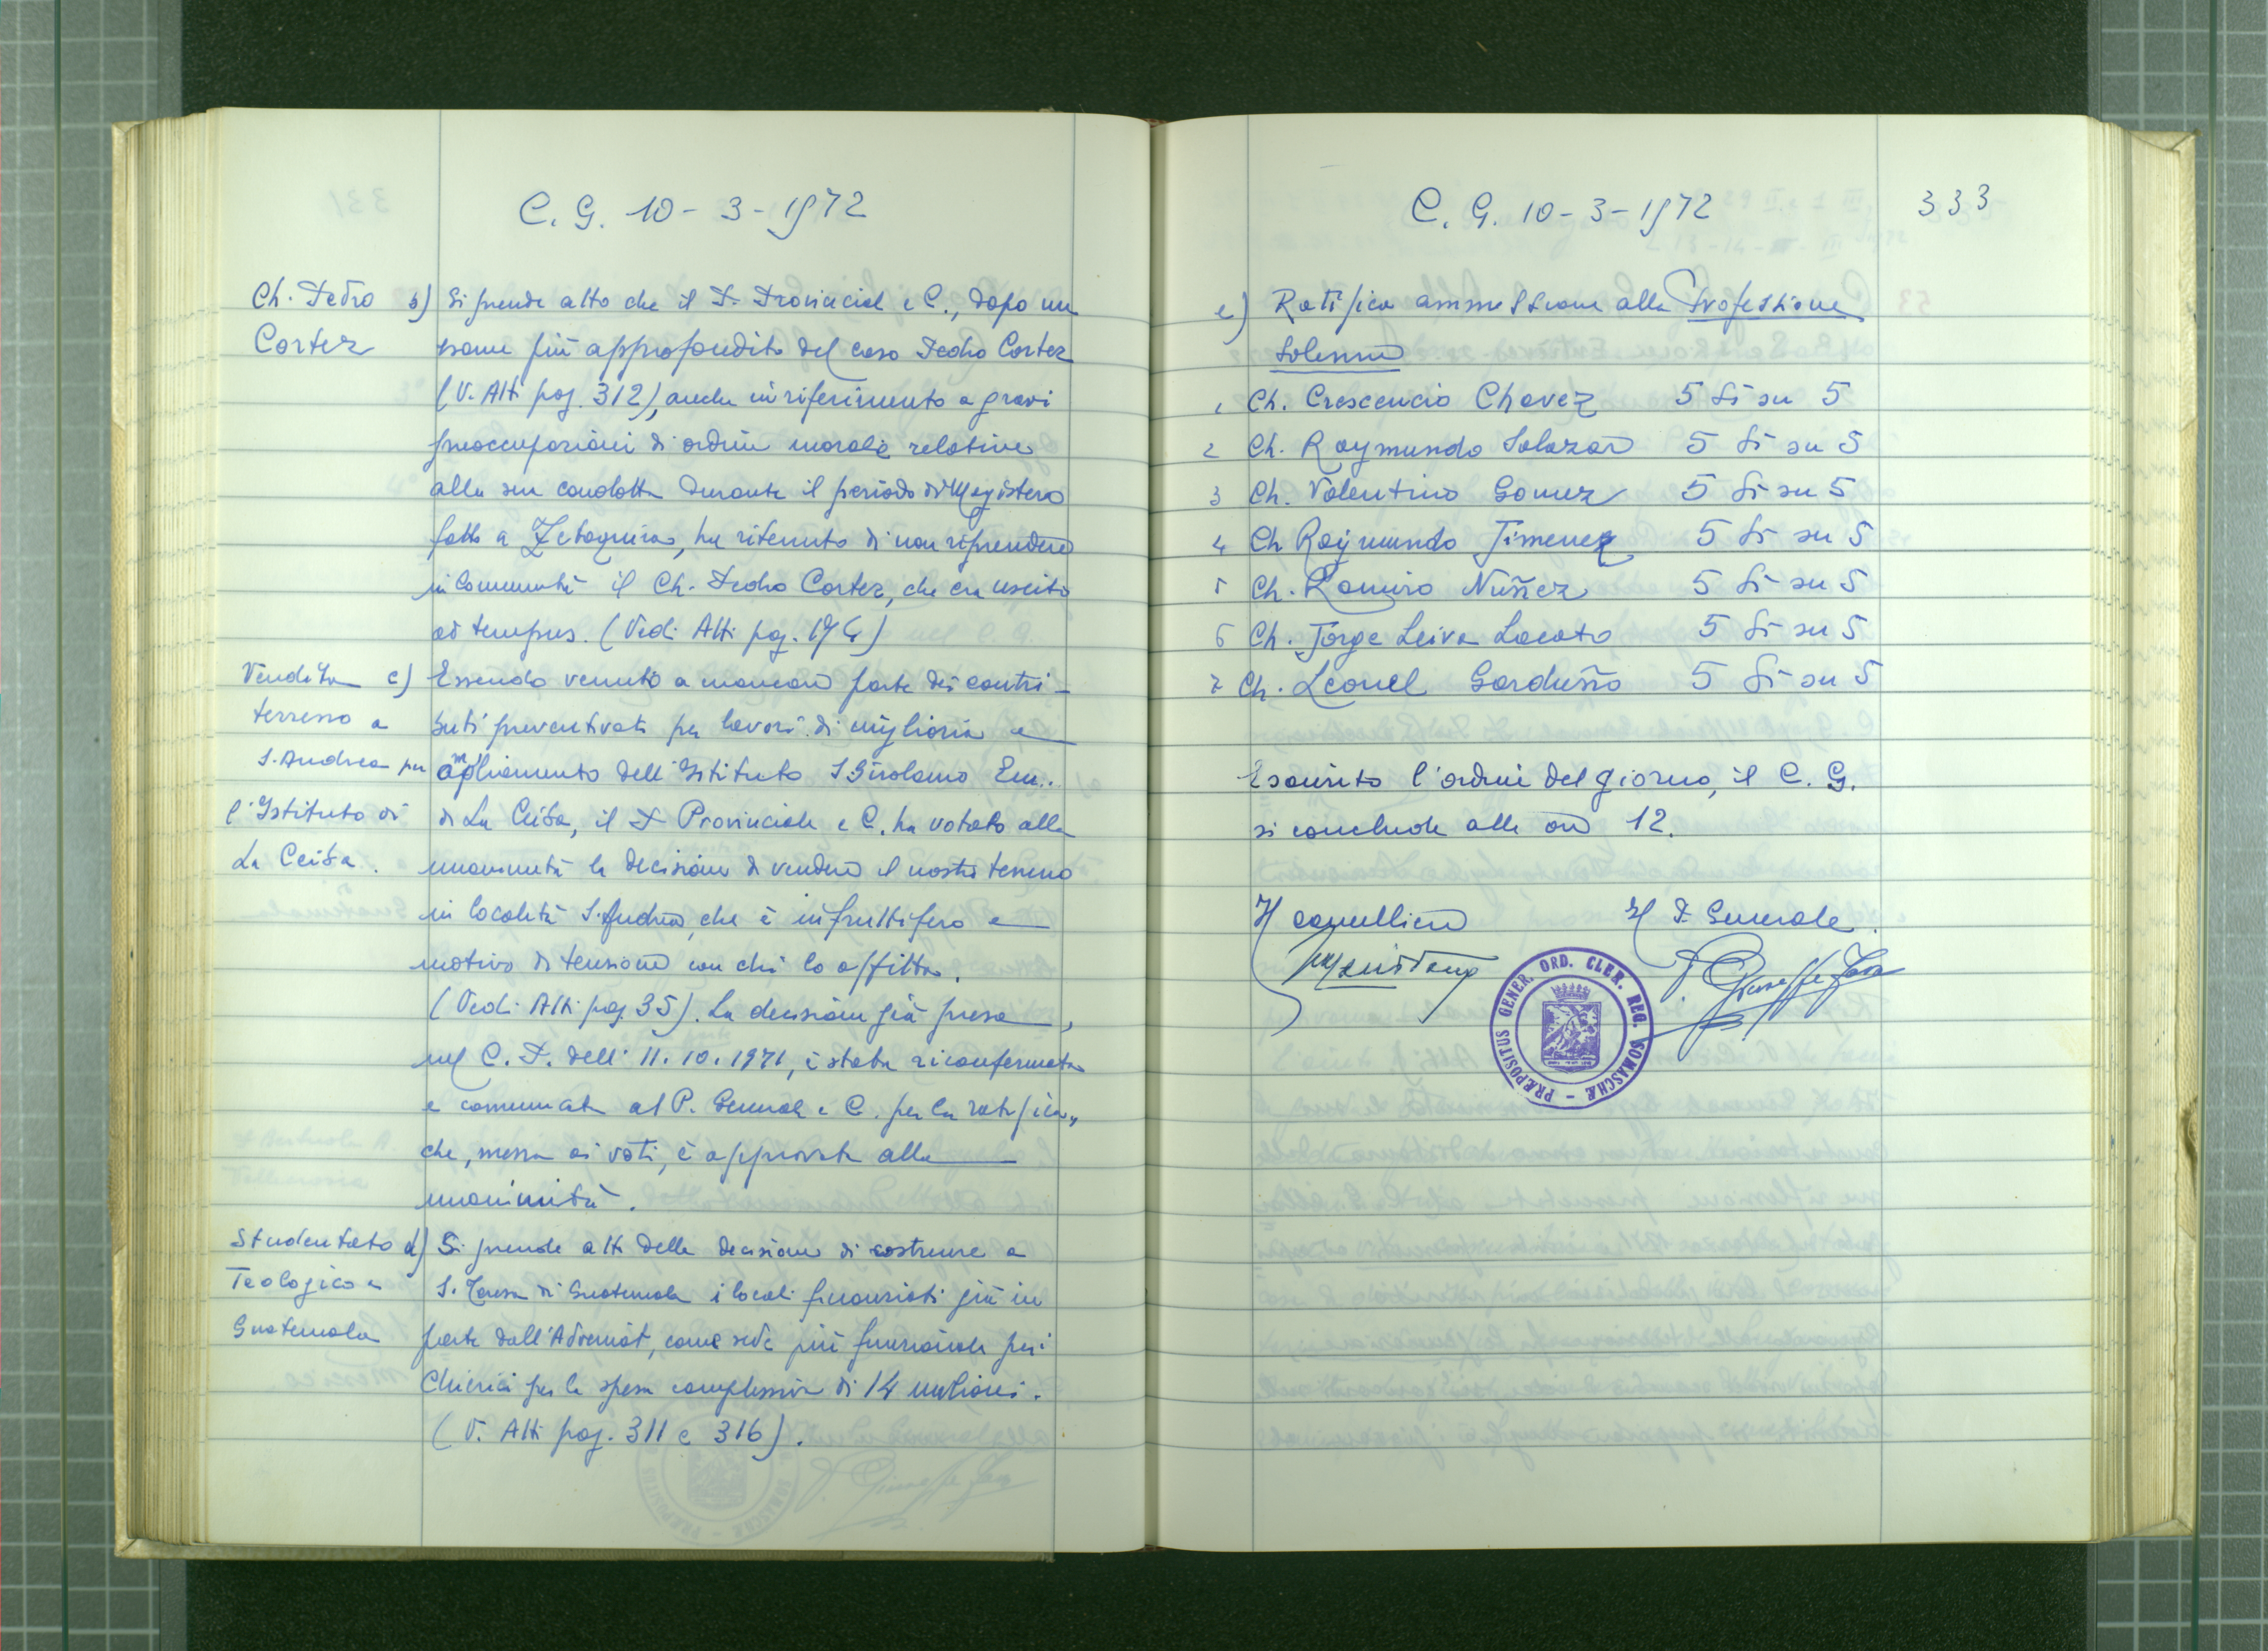 C. G. 10-3-1972
Ch. Pedro
Cortez
b) Si prende atto che il P. Provinciale e C., dopo un
esame più approfondito del caso Pedro Cortez
(V. Atti pag. 312), anche in riferimento a gravi
preoccupazioni di ordine morale relative
alla sua condotta durante il periodo di Magistero
fatto a Zetaquira, ha ritenuto di non riprendere
in Comunità il Ch. Pedro Cortez, che era uscito
ad tempus. (Vedi Atti pag.
Vendita
terreno a
S. Andrea per
l'Istituto di
La Ceiba.
c) Essendo venuto a mancare parte dei contri-
buti preventivati per lavori di miglioria e
ampliamento dell'Istituto S. Girolamo Em.
di La Ceiba, il P. Provinciale e C. ha votato alla
unanimità la decisione di vendere il nostro terreno
in località S. Andrea, che è infruttifero e
motivo di tensione con chi lo affitta.
(Vedi Atti pag. 35). La decisione già presa,
nel C. P. dell' 11.10.1971, è stata riconfermata
e comunicata al P. Generale e C. per la ratifica,
che, messa ai voti, è approvata alla
unanimità.
Studentato
Teologico a
Guatemala
d) Si prende atto della decisione di costruire a
S. Teresa di Guatemala i locali finanziati già in
parte dall'Adveniat, come sede più funzionale per i
Chierici per la spesa complessiva di 14 milioni.
(V. Atti pag. 311 e 316).
C. G. 10-3-1972 333
e) Ratifica ammissione alla Professione
Solenne
1 Ch. Crescencio Chavez 5 Sì su 5
2 Ch. Raymundo Salazar 5 Sì su 5
3 Ch. Valentino Gomez 5 Sì su 5
4 Ch Raymundo Jimenez 5 Sì su 5
5 Ch. Ramiro Nuñez 5 Sì su 5
6 Ch. Jorge Leiva Locato 5 Sì su 5
7 Ch. Leonel Garduño 5 Sì su 5
Esaurito l'ordine del giorno, il C. G.
si conclude alle ore 12.
Il cancelliere Il P. Generale.
P. Giuseppe Fava
PRÆPOSITUS GENER. ORD. CLER. REG. SOMASCHÆ